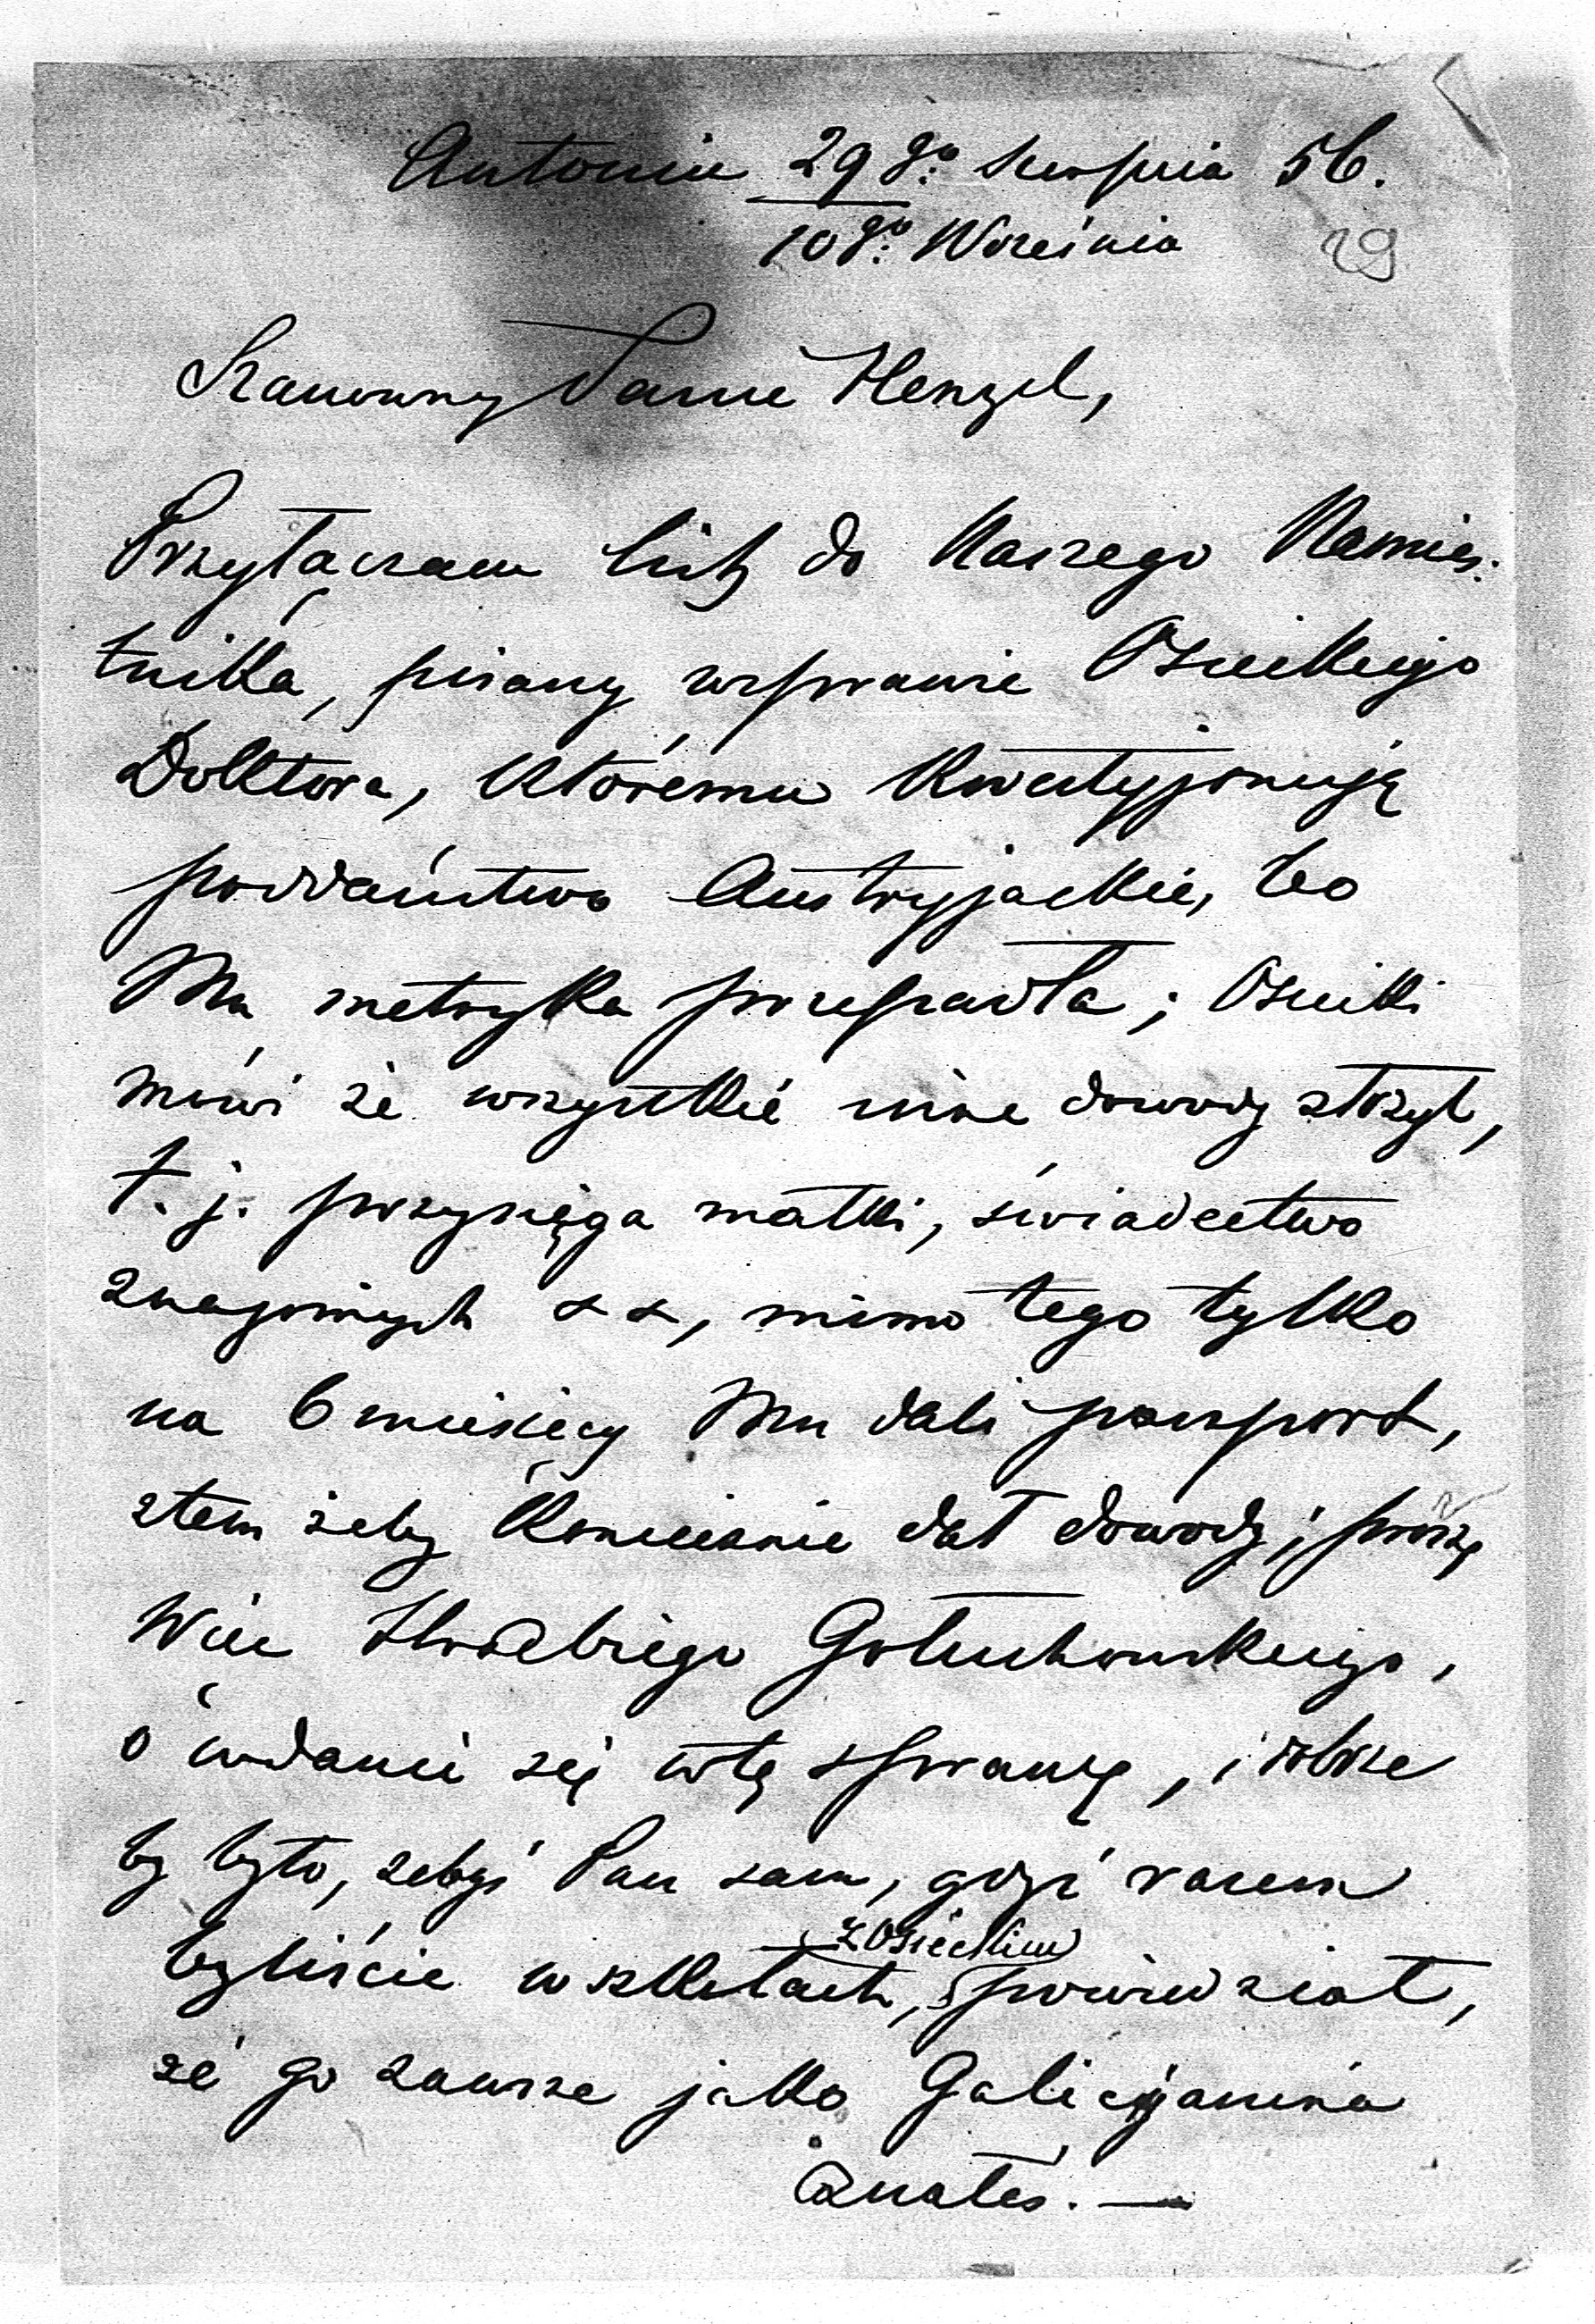 Antonin 29go Sierpnia 56.
10go Wrzešnia
29
Szanowny Panie Henzel,
Przyłączam list do Naszego Namies:
tnika, pisany w sprawie Osieckiego
Doktora, któremu kwestyjonują
poddaństwo Austryjackie, bo
Mu metryka przepadła; Osiecki
mówi że wszystkie inne dowody złożył,
t. j. przysięga matki, świadectwo
znajomych &&, mimo tego tylko
na 6 miesięcy Mu dali paszport,
z tem żeby koniecznie dał dowody; proszę
Więc Hrabiego Gołuchowskiego,
o wdanie się w tę sprawę, i dobrze
by było, żebyś Pan sam, gdyż razem
z Osieckim
byliście w szkołach, powiedział,
że go zawsze jako Galicyjanina
znałeś. —